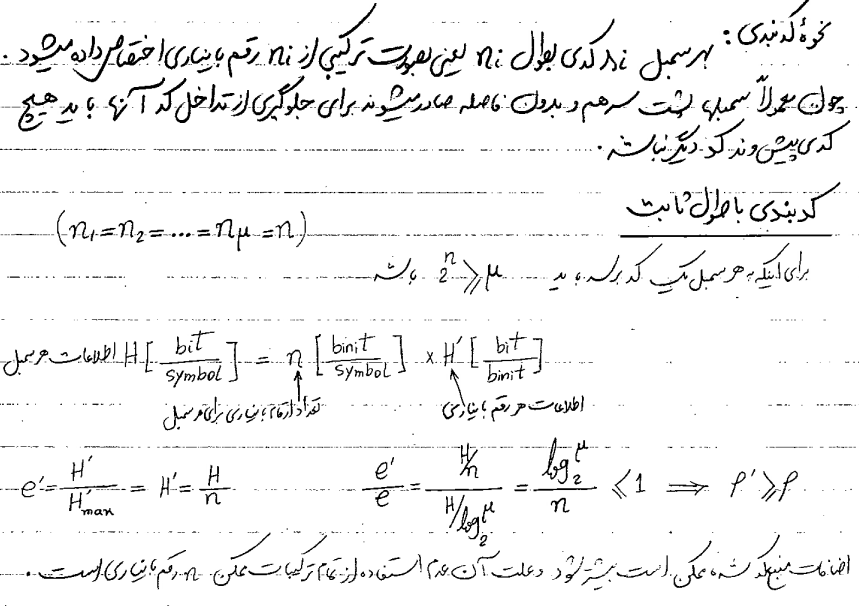 نحوهٔ کدبندی: بهر سمبل si کدی بطول ni یعنی بصورت ترکیبی از ni رقم باینری اختصاص داده میشود.
چون معمولاً سمبلها پشت سر هم و بدون فاصله صادر میشوند برای جلوگیری از تداخل کد آنها باید هیچ
کدی پیشوند کد دیگر نباشد.
کدبندی با طول ثابت (n₁=n₂=...=nμ=n)
برای اینکه به هر سمبل یک کد برسد باید 2ⁿ ⩾ μ باشد
اطلاعات هر سمبل H [bit/symbol] = n [binit/symbol] × H′ [bit/binit]
تعداد ارقام باینری برای هر سمبل اطلاعات هر رقم باینری
e′ = H′/H′max = H′ = H/n e′/e = (H/n)/(H/log₂μ) = log₂μ/n ⩽ 1 ⟹ ρ′ ⩾ ρ
اضافات منبع کد شده ممکن است بیشتر شود و علت آن عدم استفاده از تمام ترکیبات ممکن n رقم باینری است.